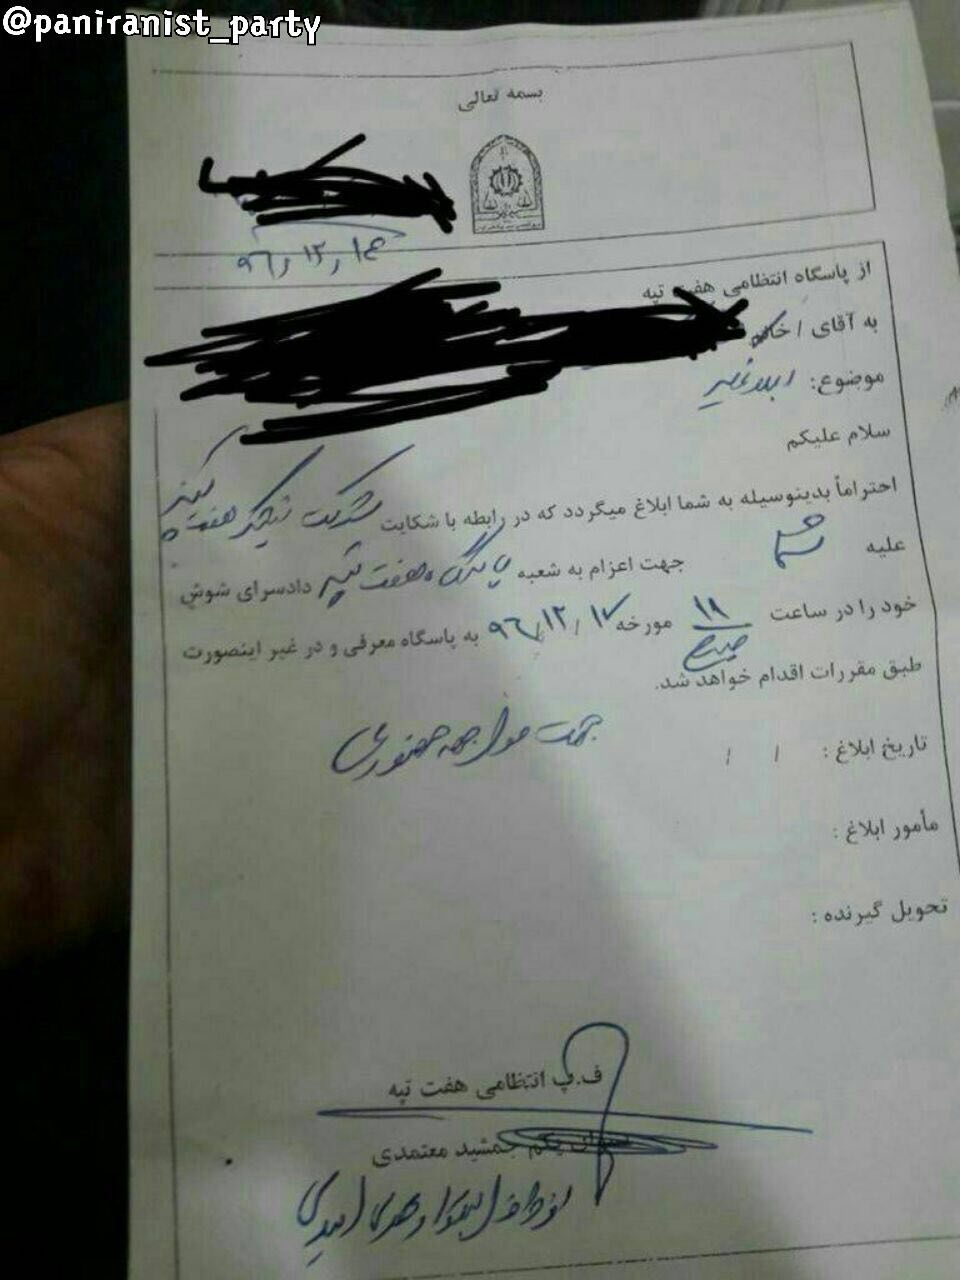 @paniranist_party
بسمه تعالی
۹۶/۱۲/۱۶
از پاسگاه انتظامی هفت تپه
به آقای / خانم
موضوع: ابلاغیه
سلام علیکم
احتراماً بدینوسیله به شما ابلاغ میگردد که در رابطه با شکایت شرکت نیشکر هفت تپه
علیه شما جهت اعزام به شعبه پاسگاه هفت تپه دادسرای شوش
خود را در ساعت ۱۱ صبح مورخه ۹۶/۱۲/۱۷ به پاسگاه معرفی و در غیر اینصورت
طبق مقررات اقدام خواهد شد.
جهت مواجهه حضوری
تاریخ ابلاغ : / /
مأمور ابلاغ :
تحویل گیرنده :
ف.پ انتظامی هفت تپه
ستوان یکم جمشید معتمدی